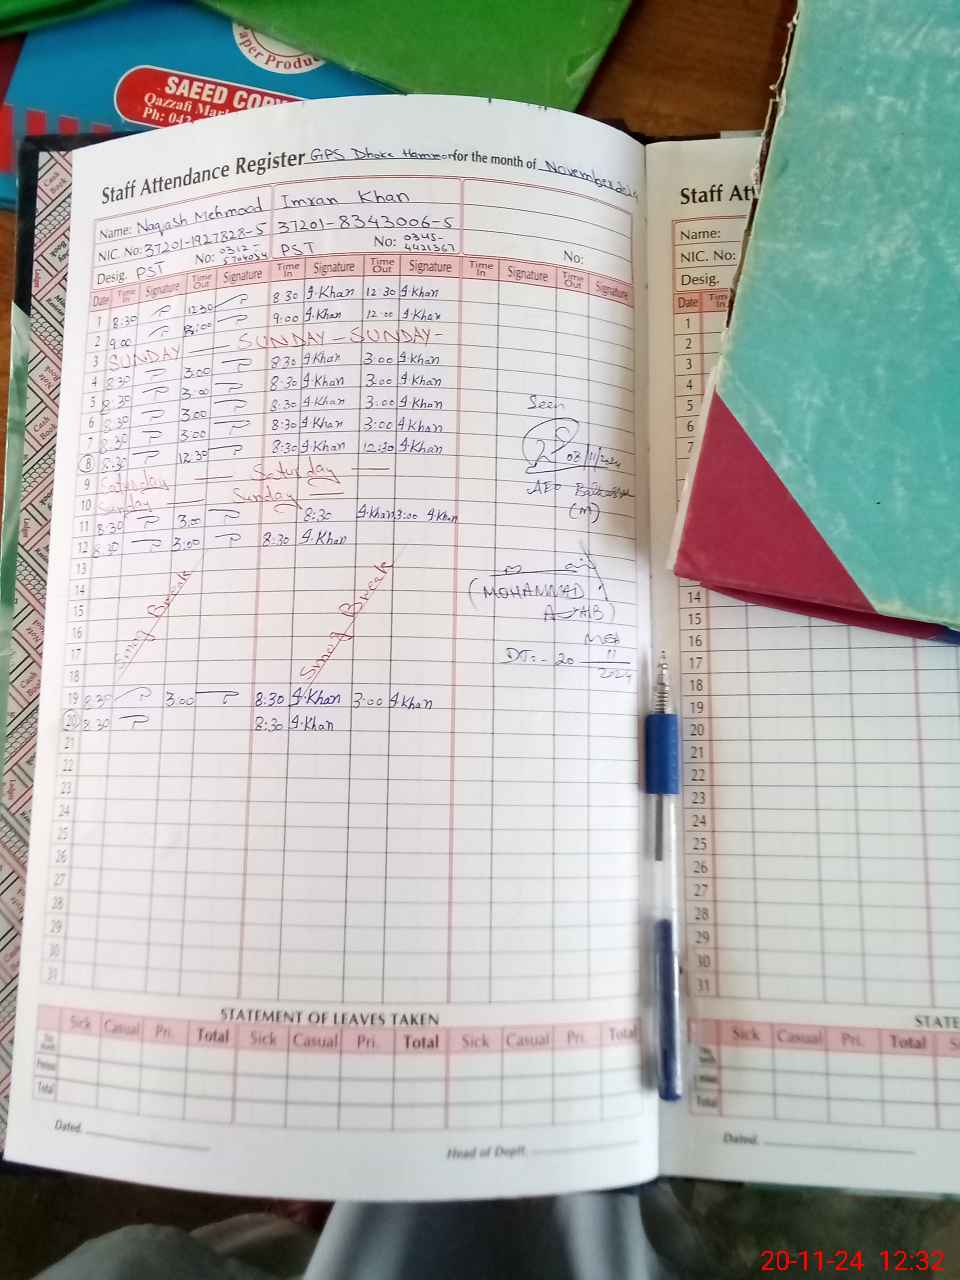 aper Produ
SAEED COPY
Qazzafi Mar
Ph: 042
Staff Attendance Register GPS Dhoke Hammor for the month of November 2024
Name: Naqash Mehmood Imran Khan
NIC. No: 37201-1927828-5 37201-8343006-5
Desig. PST No: 0312- PST No: 0345-4421367 No:
Date Time In Signature Time Out Signature Time In Signature Time Out Signature Time In Signature Time Out Signature
1 8:30 12:30 8:30 I.Khan 12:30 I.Khan
2 9:00 9:00 I.Khan 12:00 I.Khan
3 SUNDAY — SUNDAY — SUNDAY -
4 8:30 3:00 8:30 I.Khan 3:00 I.Khan
5 8:30 3:00 8:30 I.Khan 3:00 I.Khan
6 8:30 3:00 8:30 I.Khan 3:00 I.Khan
7 8:30 3:00 8:30 I.Khan 3:00 I.Khan
8 8:30 12:30 8:30 I.Khan 12:30 I.Khan
9 Saturday — Saturday —
10 Sunday — Sunday —
11 8:30 3:00 8:30 I.Khan 3:00 I.Khan
12 8:30 3:00 8:30 I.Khan
13
14
15
16
17
18
Smog Break Smog Break
19 8:30 3:00 8:30 I.Khan 3:00 I.Khan
20 8:30 8:30 I.Khan
21
22
23
24
25
26
27
28
29
30
31
Seen
08/11/2024
AEO
(M)
(MOHAMMAD
MEA
DT:- 20
11
2024
STATEMENT OF LEAVES TAKEN
Sick Casual Pri. Total Sick Casual Pri. Total Sick Casual Pri. Total
Total
Dated.
Head of Deptt.
Staff Att
Name:
NIC. No:
Desig.
Date Time In
1
2
3
4
5
6
7
14
15
16
17
18
19
20
21
22
23
24
25
26
27
28
29
30
31
STATE
Sick Casual Pri. Total S
Total
Dated.
20-11-24 12:32